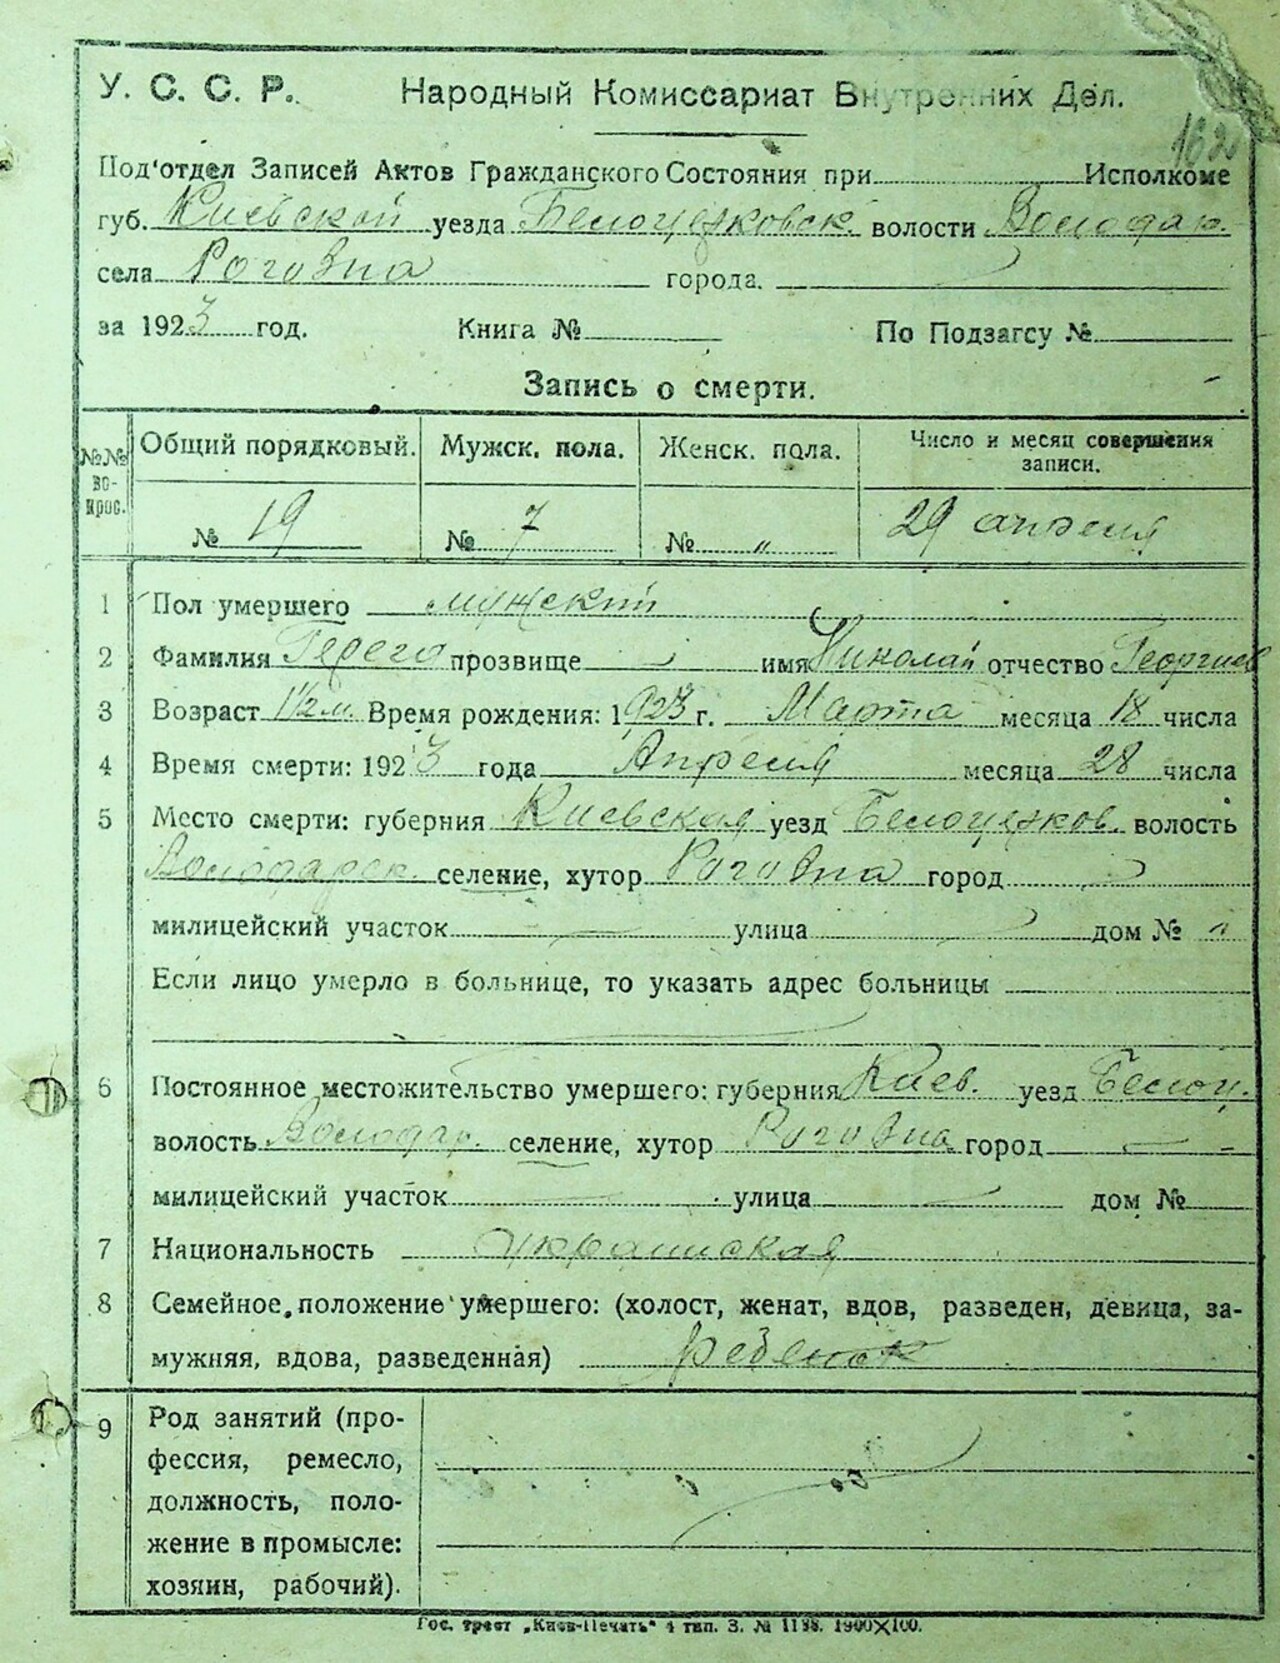 162
У. С. С. Р. Народный Комиссариат Внутренних Дел.
Под'отдел Записей Актов Гражданского Состояния при Исполкоме
губ. Киевской уезда Белоцерковск. волости Володар.
села Роговна города.
за 1923 год. Книга № По Подзагсу №
Запись о смерти.
№№ вопрос. Общий порядковый. Мужск. пола. Женск. пола. Число и месяц совершения записи.
№ 19 № 7 № „ 29 апреля
1 Пол умершего мужский
2 Фамилия Герего прозвище имя Николай отчество Георгиев
3 Возраст 1½ м. Время рождения: 1923 г. Марта месяца 18 числа
4 Время смерти: 1923 года Апреля месяца 28 числа
5 Место смерти: губерния Киевская уезд Белоцерков. волость
Володарск. селение, хутор Роговна город
милицейский участок улица дом № „
Если лицо умерло в больнице, то указать адрес больницы
6 Постоянное местожительство умершего: губерния Киев. уезд Белоц.
волость Володар. селение, хутор Роговна город
милицейский участок улица дом №
7 Национальность украинская
8 Семейное положение умершего: (холост, женат, вдов, разведен, девица, за-
мужняя, вдова, разведенная) ребенок
9 Род занятий (про-
фессия, ремесло,
должность, поло-
жение в промысле:
хозяин, рабочий).
Гос. трест „Киев-Печать“ 4 тип. З. № 1198. 1900×100.